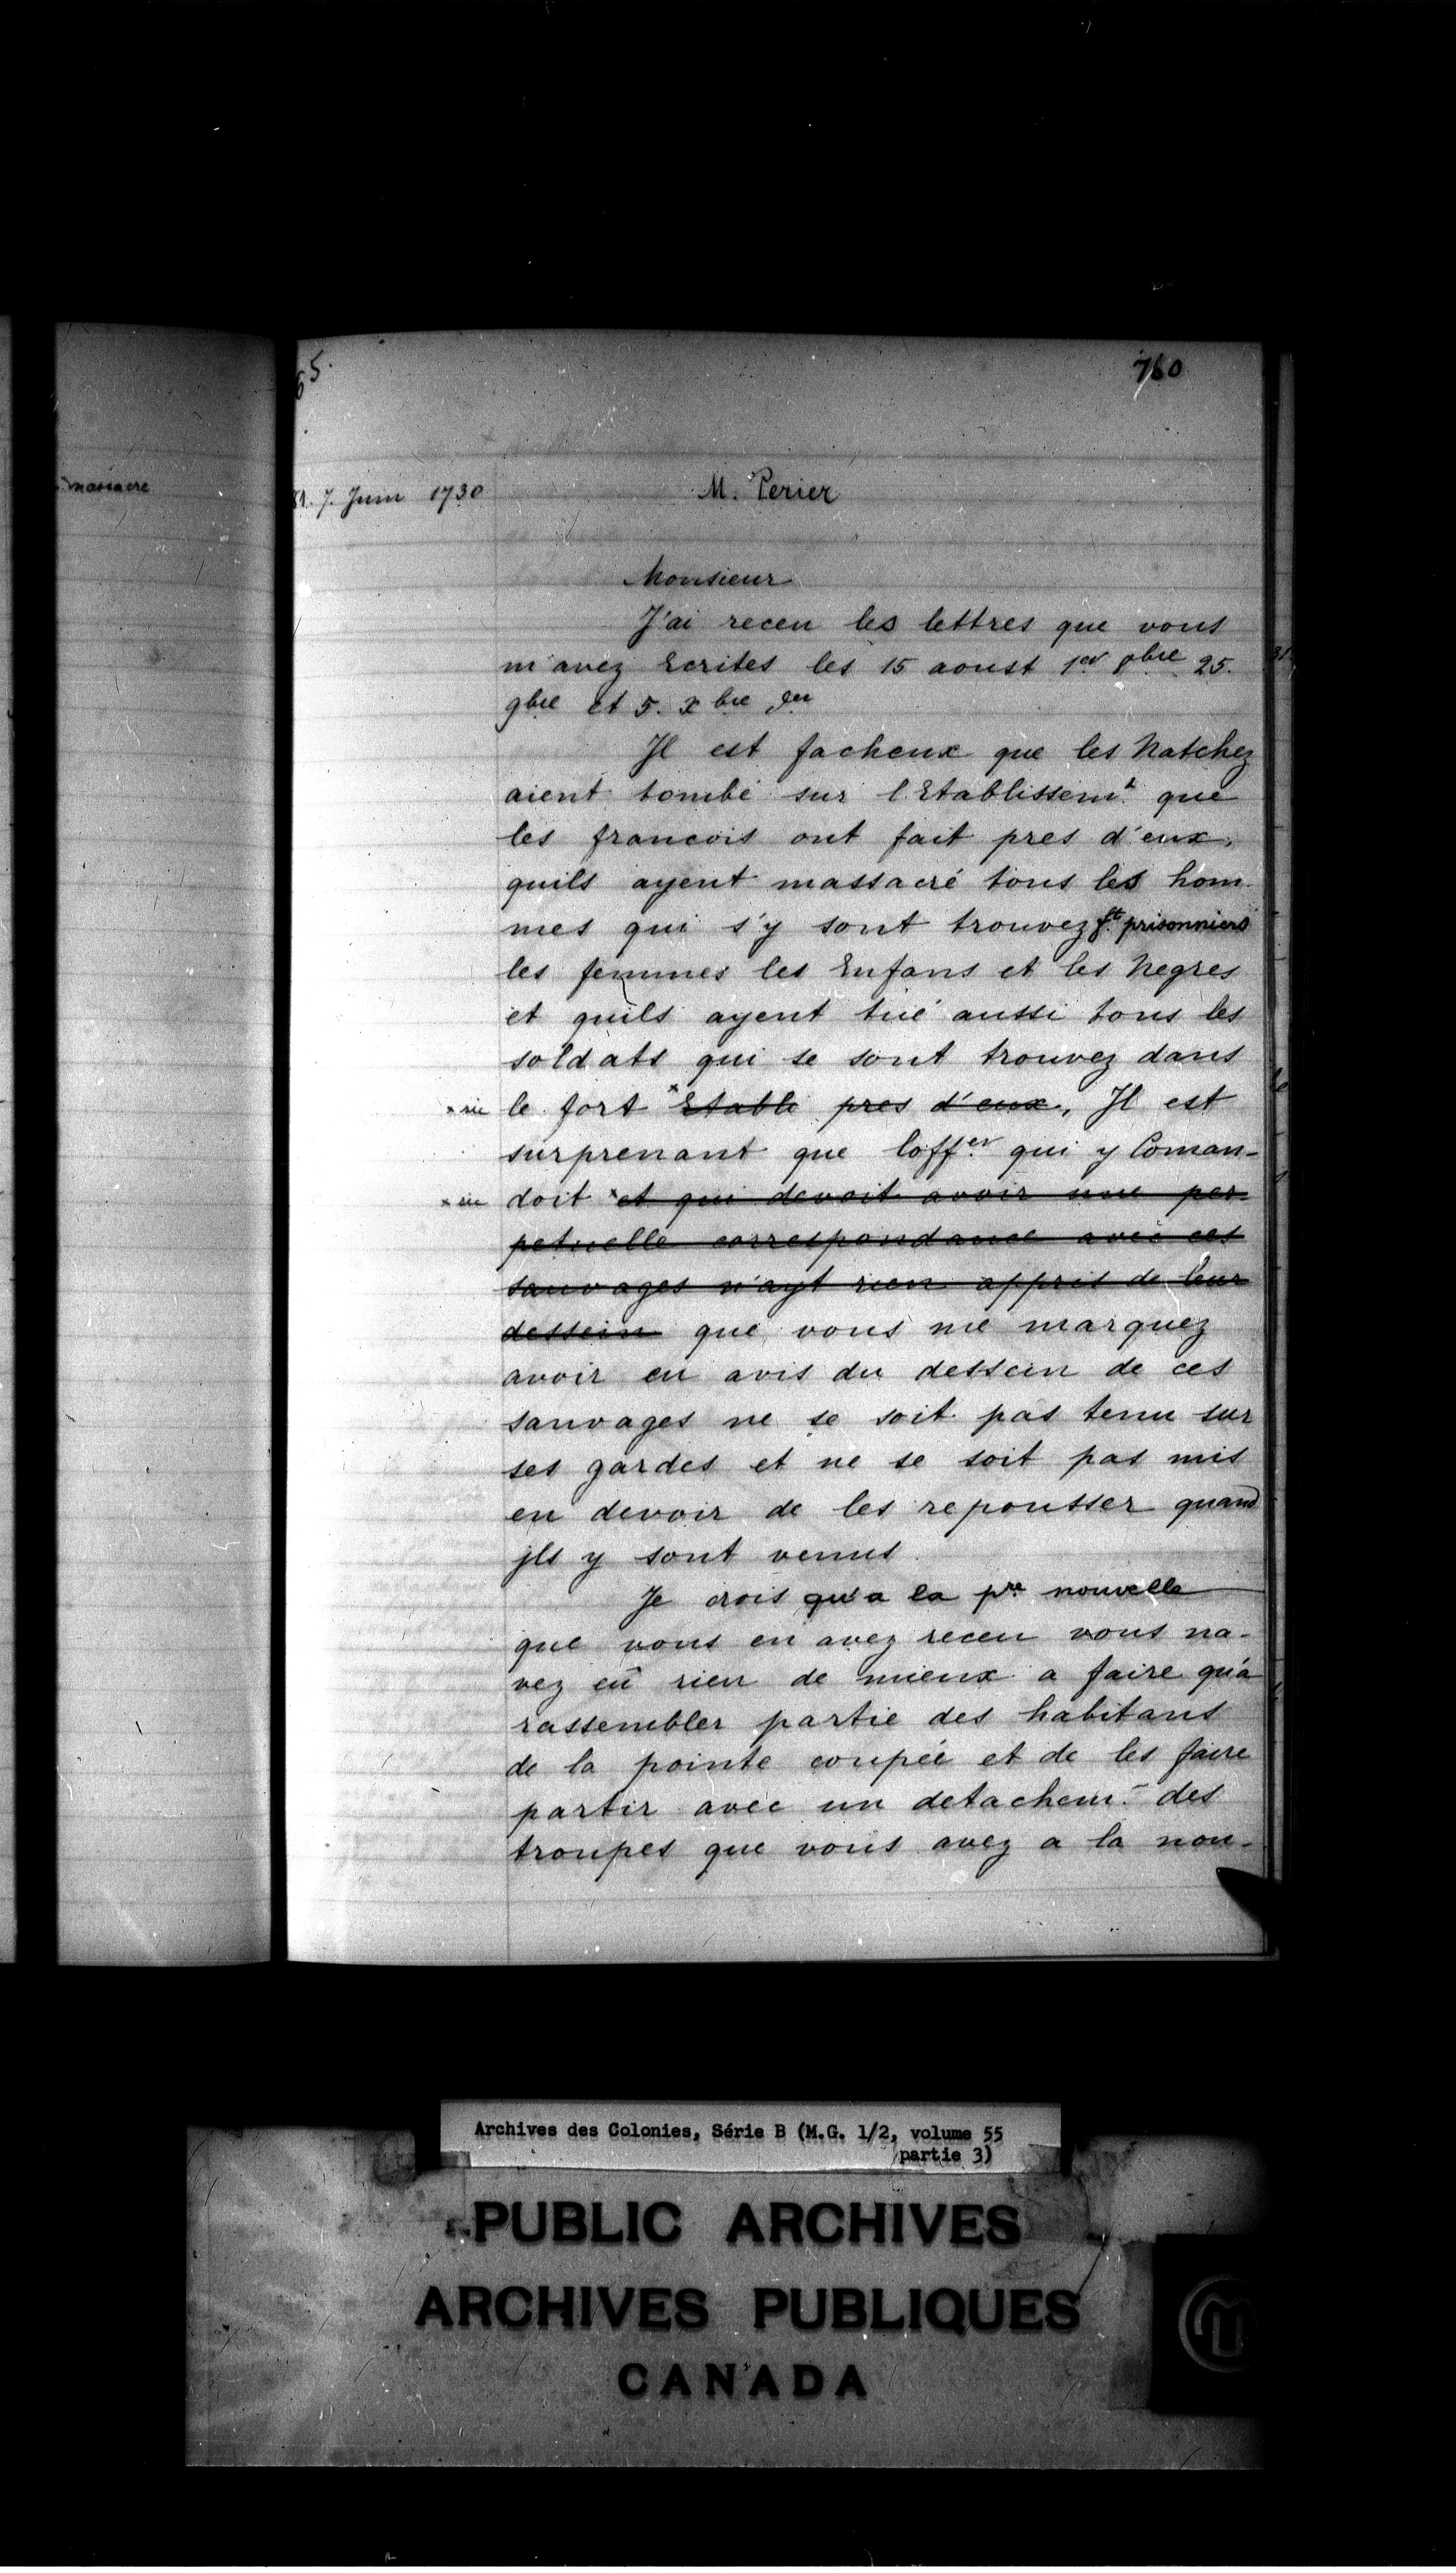 massacre
65.
760
7. Juin 1730
M. Perier
Monsieur
J'ai receu les lettres que vous
m'avez Ecrites les 15 aoust 1er 8bre 25.
9bre et 5. xbre der
Il est facheux que les Natchez
aient tombé sur l'Etablissemt que
les francois ont fait pres d'eux,
quils ayent massacré tous les hom
mes qui s'y sont trouvez ft prisonniers
les femmes les Enfans et les Negres
et quils ayent tué aussi tous les
soldats qui se sont trouvez dans
x sic le fort x Etabli pres d'eux, Il est
surprenant que loffer qui y Coman-
x sic doit x et qui devoit avoir une per-
petuelle correspondance avec ces
sauvages n'ayt rien appris de leur
dessein que vous me marquez
avoir eu avis du dessein de ces
sauvages ne se soit pas tenu sur
ses gardes et ne se soit pas mis
en devoir de les repousser quand
jls y sont venus.
Je crois qu'a la pre nouvelle
que vous en avez receu vous na-
vez eû rien de mieux a faire qu'a
rassembler partie des habitans
de la pointe coupée et de les faire
partir avec un detachem. des
troupes que vous avez a la nou-
Archives des Colonies, Série B (M.G. 1/2, volume 55
partie 3)
PUBLIC ARCHIVES
ARCHIVES PUBLIQUES
CANADA